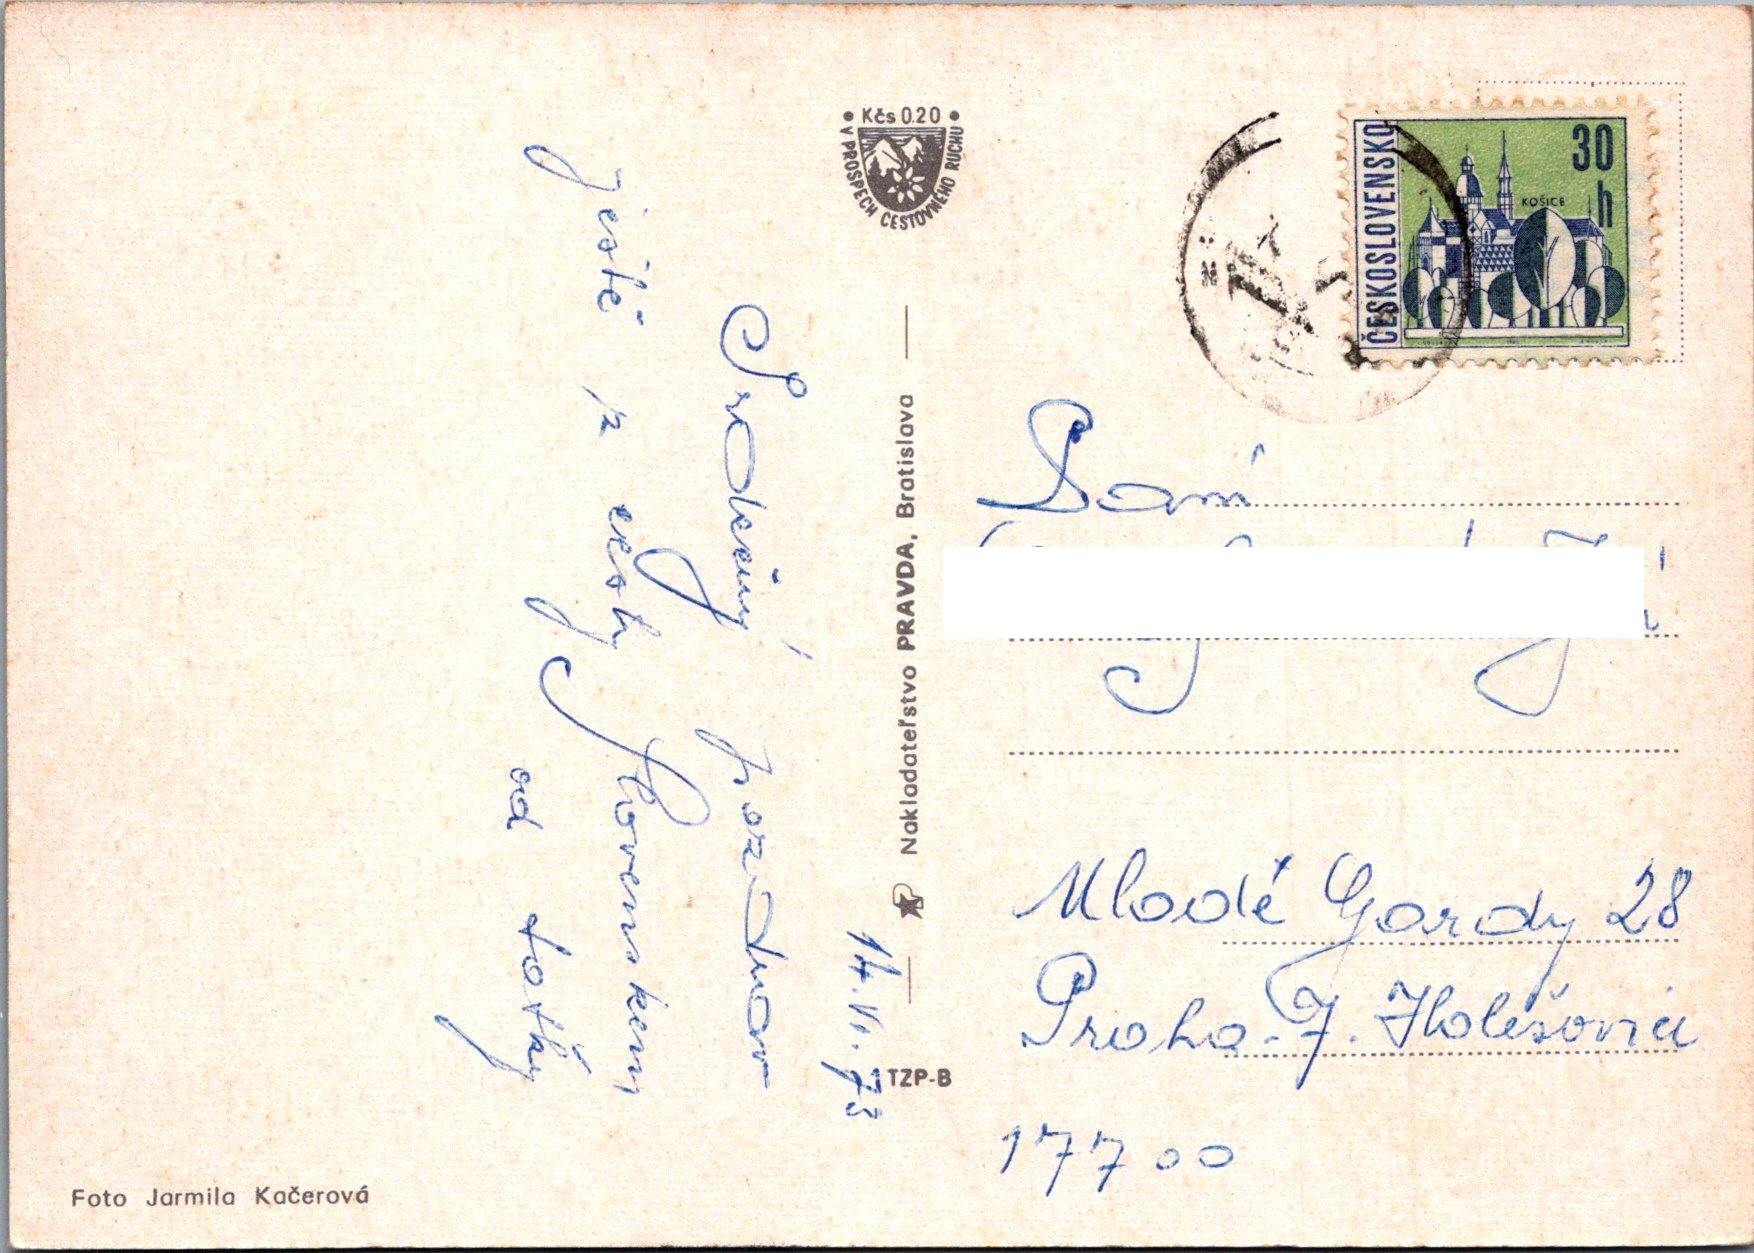 Kčs 0.20
V PROSPECH CESTOVNÉHO RUCHU
ČESKOSLOVENSKO
30
h
KOŠICE
14. VI. 73
Srdečný pozdrav
ještě z cesty Slovenskem
od tatky
Nakladateľstvo PRAVDA, Bratislava
TZP-B
Paní
Mladé Gardy 28
Praha-7. Holešovice
177 00
Foto Jarmila Kačerová